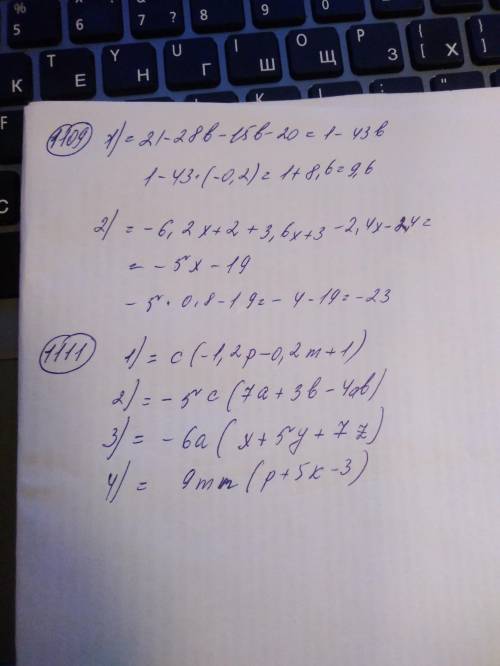 % 5 6 7 ? 8 9 0
T Y U І O P { [
К Е Н Г Ш Щ З Х
1109 1) = 21 - 28в - 15в - 20 = 1 - 43в
1 - 43·(-0,2) = 1 + 8,6 = 9,6
2) = -6,2x + 2 + 3,6x + 3 - 2,4x - 2,4 =
= - 5x - 19
- 5 · 0,8 - 19 = - 4 - 19 = -23
1111 1) = c (-1,2p - 0,2m + 1)
2) = - 5c (7a + 3в - 4aв)
3) = -6a (x + 5y + 7z)
4) = 9mn (p + 5k - 3)